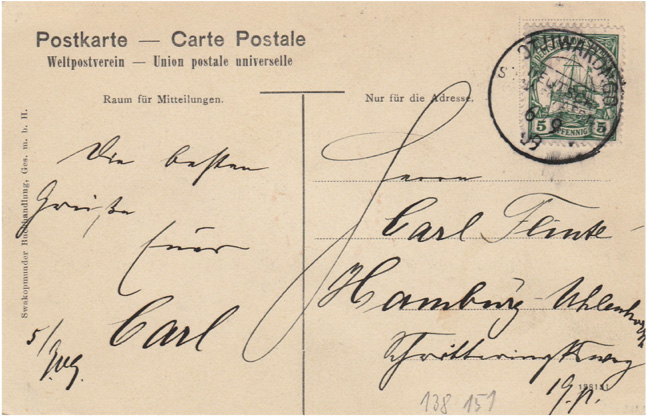 Postkarte — Carte Postale
Weltpostverein — Union postale universelle
Raum für Mitteilungen.
Nur für die Adresse.
Die besten
Grüße
Euer
Carl
5/9.09.
Herrn
Carl Flinte
Hamburg-Uhlenhorst
19
138 151
138151
Swakopmunder Buchhandlung, Ges. m. b. H.
OTJIWARONGO
6 9
09
5 PFENNIG 5